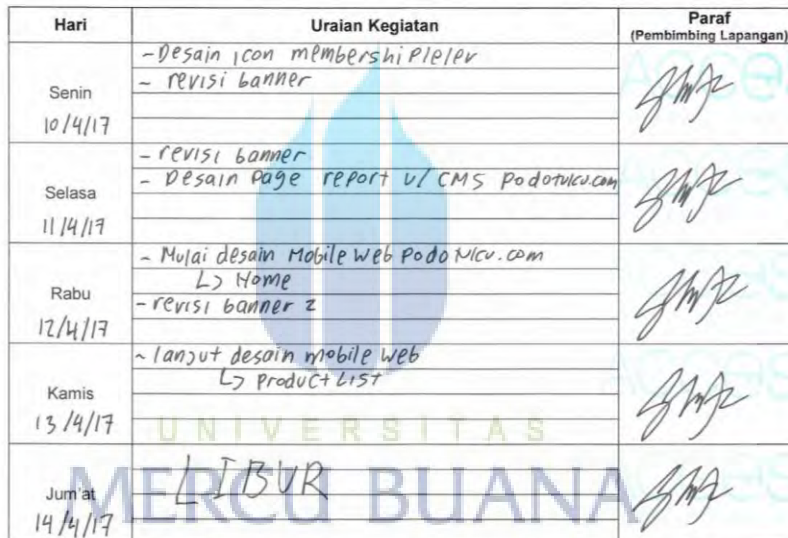 Hari Uraian Kegiatan Paraf
(Pembimbing Lapangan)
Senin
10/4/17
- Desain icon membership lelev
- revisi banner
Selasa
11/4/17
- revisi banner
- Desain Page report u/ CMS Podotuku.com
Rabu
12/4/17
- Mulai desain Mobile Web Podotuku.com
↳ Home
- revisi banner 2
Kamis
13/4/17
- lanjut desain mobile web
↳ Product List
Jum'at
14/4/17
LIBUR
UNIVERSITAS
MERCU BUANA